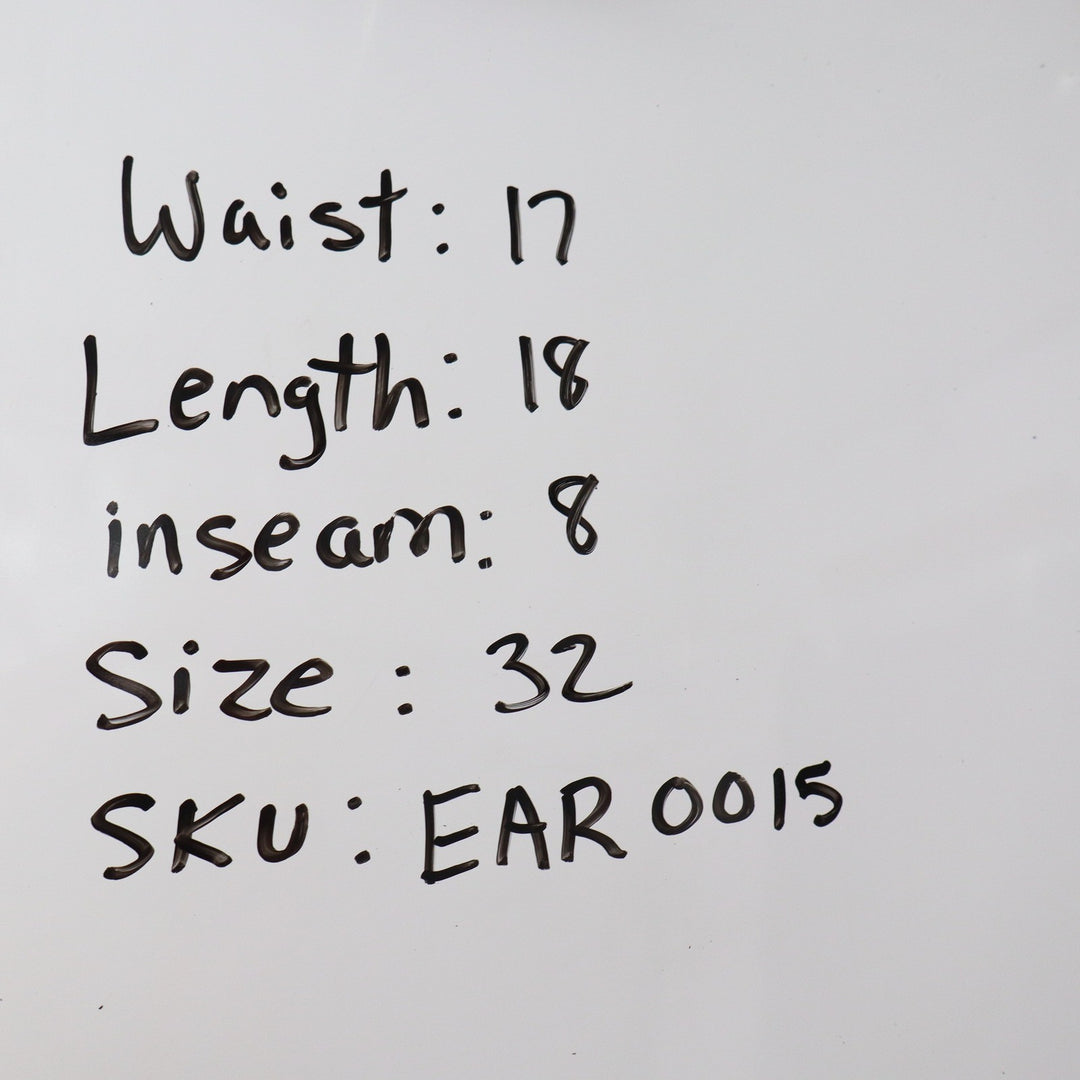 Waist: 17
Length: 18
inseam: 8
Size: 32
SKU: EAR0015